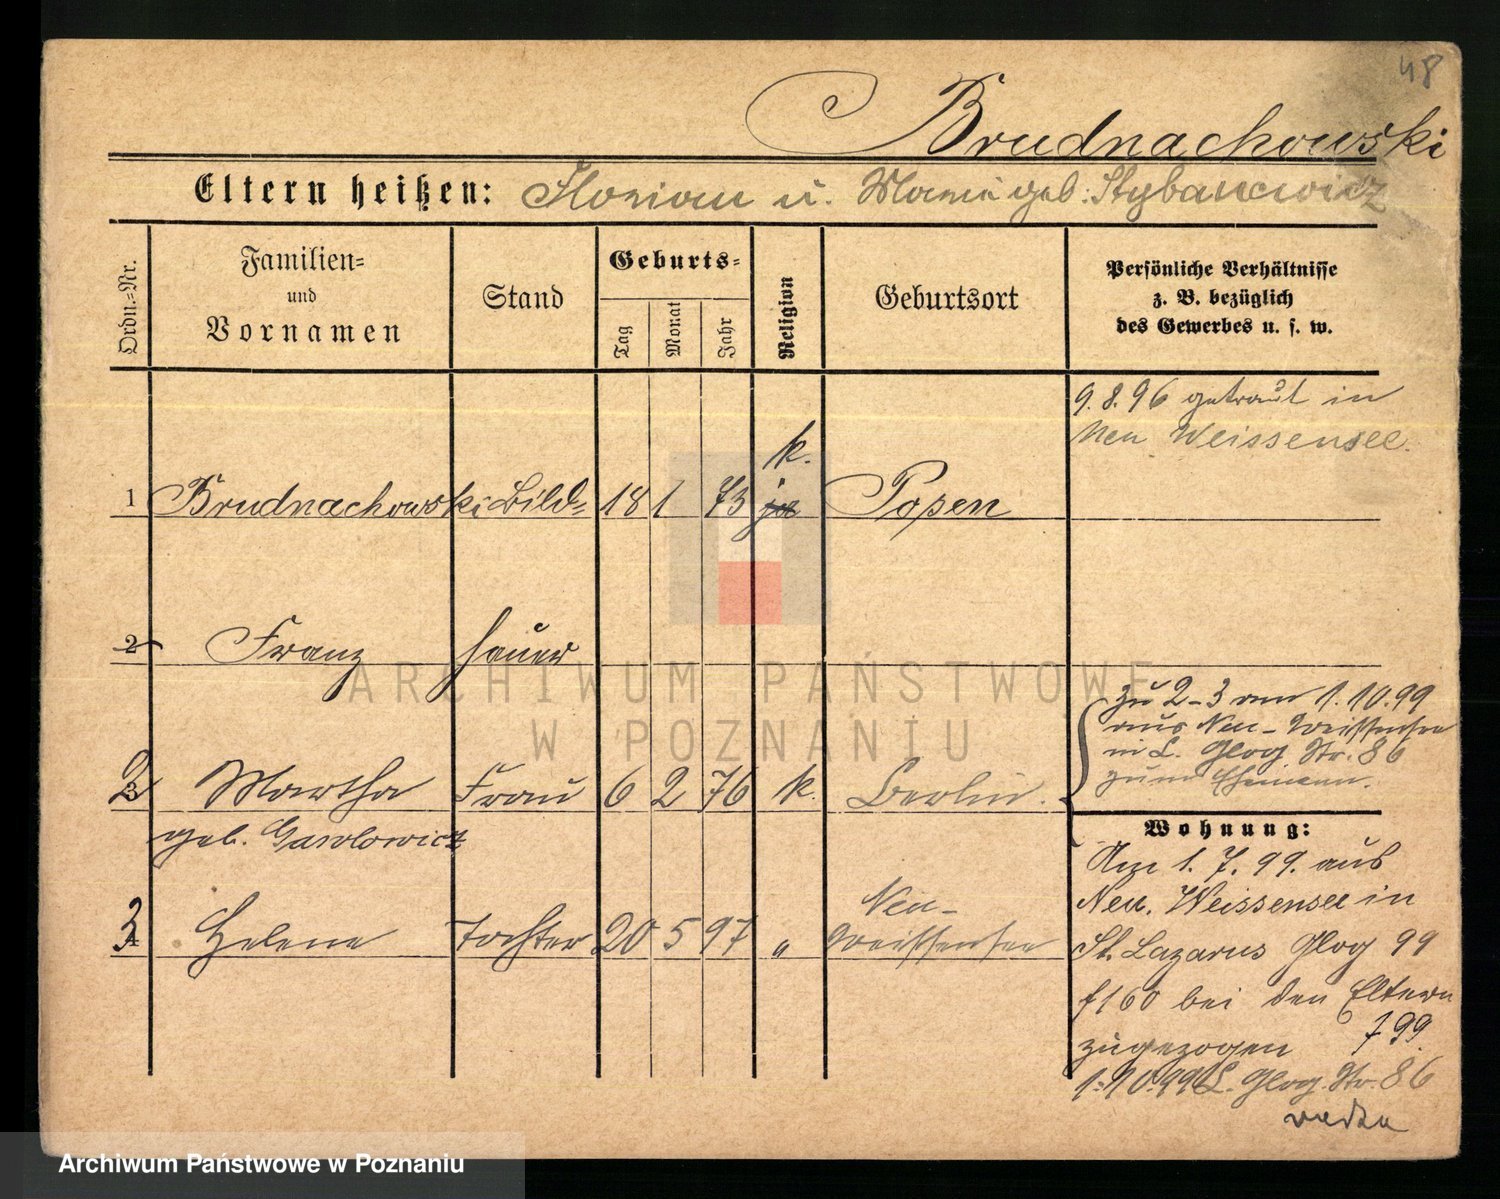 48
Brudnachowski
Eltern heißen: Florian u. Maria geb. Stybancewicz
Ordn.=Nr.
Familien=
und
Vornamen
Stand
Geburts=
Tag
Monat
Jahr
Religion
Geburtsort
Persönliche Verhältnisse
z. B. bezüglich
des Gewerbes u. s. w.
9. 8. 96 getraut in
Neu Weissensee.
k.
1 Brudnachowski Bild= 18 1 73 Posen
2 Franz hauer
zu 2-3 am 1.10.99
aus Neu-Weißensee
n. L. Glog Str. 86
zum Ehemann.
2 3 Martha Frau 6 2 76 k. Berlin.
geb.
Wohnung:
Am 1. 7. 99. aus
Neu. Weissensee in
St. Lazarus Glog 99
f160 bei den Eltern
zugezogen 799.
1.10.99 L. Glog. Str. 86
3 4 Helene Tochter 20 5 97 " Neu-
Weißensee
ARCHIWUM PAŃSTWOWE
W POZNANIU
Archiwum Państwowe w Poznaniu